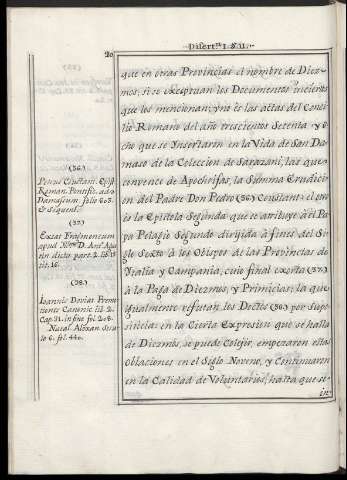 Disert.ⁿ I. §. II.
20
que en otras Provincias el nombre de Diez-
mos, si se exceptuan los Documentos inciertos
que los mencionan; y no es las actas del Conci-
lio Romano del año trescientos Setenta y o-
cho que se Insertaron en la Vida de San Da-
maso de la Coleccion de Sarazani, las que
convence de Apochrifas, la Summa Erudicion
del Padre Don Pedro (36) Coustant: el otro
es la Epistola Segunda que se atribuye à el Pa-
pa Pelagio Segundo dirijida à fines del Si-
glo Sexto à los Obispos de las Provincias de
Italia y Campania, cuio final exorta (37)
à la Paga de Diezmos, y Primicias; la que
igualmente refutan los Doctos (38) por Supo-
siticia: en la Cierta Expresion que se halla
de Diezmos, se puede Colejir, empezaron estas
oblaciones en el Siglo Noveno, y Continuaron
en la Calidad de Voluntarias, hasta que si-
in
(36)
Petrus Coustant. Epist.
Roman. Pontific. ad
Damassum. folio 603.
& Sequent.
(37)
Extat Fragmentum
apud D. Ant. Agus-
tin dicta part. 2. lib.
tit. 16.
(38)
Ioannis Doviat Preno-
tiones Canonic. lib. 2.
Cap. 31. in fine fol. 208.
Natal. Alexan. Secu-
lo 6. fol. 440.